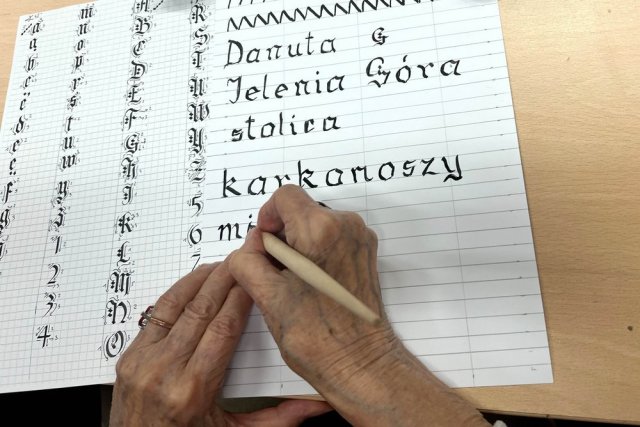 Danuta G
Jelenia Góra
stolica
karkonoszy
mi
a
b
c
d
e
f
g
m
n
o
p
r
s
t
u
w
y
z
1
2
3
4
A
B
C
D
E
F
G
H
I
K
L
M
N
O
R
S
T
U
W
Y
Z
5
6
7